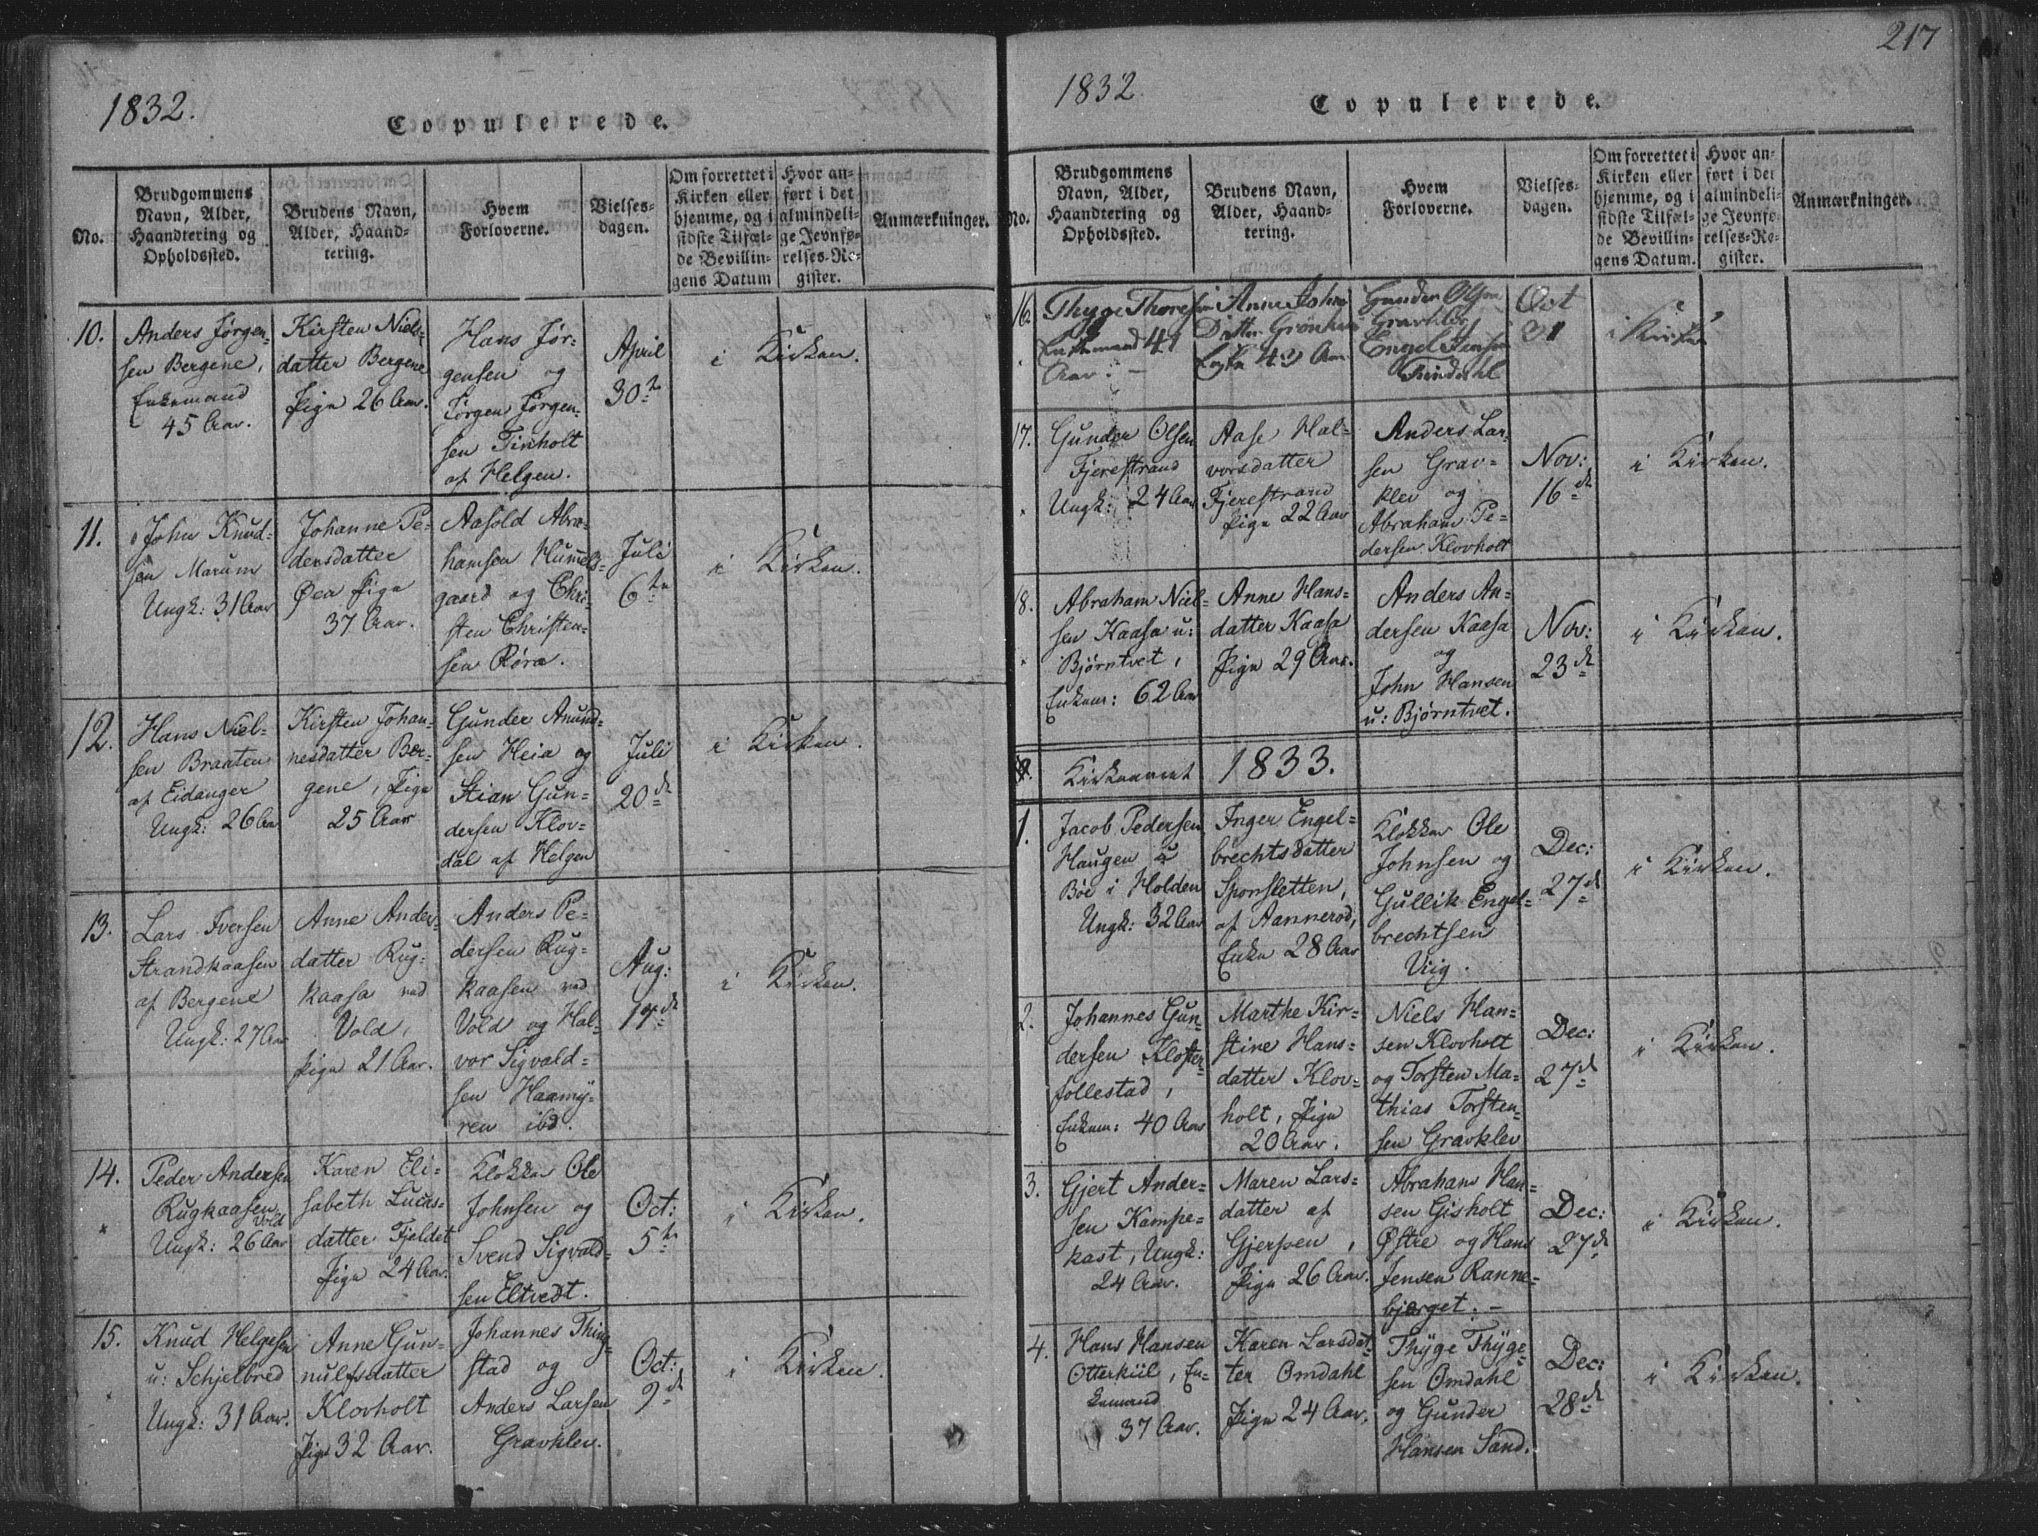 1832.
Copulerede.
No.
Brudgommens
Navn, Alder,
Haandtering og
Opholdssted.
Brudens Navn,
Alder, Haand-
tering.
Hvem
Forloverne.
Vielses-
dagen.
Om forrettet i
Kirken eller
hjemme, og i
sidste Tilfæl-
de Bevillin-
gens Datum
Hvor an-
ført i det
almindeli-
ge Jevnfø-
relses-Re-
gister.
Anmærkninger.
10.
Anders Jørgen-
sen Bergene,
Enkemand
45 Aar.
Kirsten Niels-
datter Bergene
Pige 26 Aar.
Hans Jør-
gensen og
Jørgen Jørgen-
sen Tinholt
af Helgen.
April
30te
i Kirken.
11.
John Knud-
sen Marum
Ungk: 31 Aar
Johanne Pe-
dersdatter
Øea Pige
37 Aar.
Aasold Abra-
hamsen Hummels-
gaard og Chri-
sten Christen-
sen Røra.
Juli
6te
i Kirken.
12.
Hans Niel-
sen Braaten
af Eidanger
Ungk: 26 Aar
Kirsten Johan-
nesdatter Ber-
gene, Pige
25 Aar
Gunder Anund-
sen Heia og
Stian Gun-
dersen Klov-
dal af Helgen
Juli
20de
i Kirken.
13.
Lars Iversen
Strandkaasen
af Bergene
Ungk: 27 Aar
Anne Anders-
datter Rug-
kaasa ved
Vold,
Pige 21 Aar.
Anders Pe-
dersen Rug-
kaasen ved
Vold og Hal-
vor Sigvald-
sen Haamy-
ren ibd.
Aug:
17de
i Kirken.
14.
Peder Andersen
Rugkaasen
Vold
Ungk: 26 Aar
Karen Eli-
sabeth Lucas-
datter Fjeldet
Pige 24 Aar.
Klokker Ole
Johnsen og
Svend Sigvald-
sen Eltvedt.
Oct:
5te
i Kirken.
15.
Knud Helgesen
u: Schjelbred
Ungk: 31 Aar.
Anne Gun-
nulfsdatter
Klovholt
Pige 32 Aar.
Johannes Thing-
stad og
Anders Larsen
Gravklev.
Oct:
9de
i Kirken.
217
1832
Copulerede.
No.
Brudgommens
Navn, Alder,
Haandtering og
Opholdssted.
Brudens Navn,
Alder, Haand-
tering.
Hvem
Forloverne.
Vielses-
dagen.
Om forrettet i
Kirken eller
hjemme, og i
sidste Tilfæl-
de Bevillin-
gens Datum.
Hvor an-
ført i det
almindeli-
ge Jevnfø-
relses-Re-
gister.
Anmærkninger.
16.
Thyge Thoresen
Enkemand 41
Aar. -
Anne Johns
Datter
Enke 43 Aar
Gunder Olsen
Gravklev
Engel Jensen
Oct
31
i Kirken
17.
Gunder Olsen
Fjerestrand
Ungk: 24 Aar
Aase Hal-
vorsdatter
Fjerestrand
Pige 22 Aar
Anders Lar-
sen Grav-
klev og
Abraham Pe-
dersen Klovholt
Nov:
16de
i Kirken.
18.
Abraham Niel-
sen Kaasa u:
Bjørntvet,
Enkem: 62 Aar
Anne Hans-
datter Kaasa
Pige 29 Aar.
Anders An-
dersen Kaasa
og
John Hansen
u: Bjørntvet.
Nov:
23de
i Kirken.
Kirkeaaret 1833.
1.
Jacob Pedersen
Haugen u
Bøe i Holden
Ungk: 32 Aar
Inger Engel-
brechtsdatter
Sponsletten,
af Aannerød,
Enke 28 Aar
Klokker Ole
Johnsen og
Gullik Engel-
brechtsen
Viig.
Dec:
27de
i Kirken.
2.
Johannes Gun-
dersen Kloster-
follestad,
Enkem: 40 Aar
Marthe Kir-
stine Hans-
datter Klov-
holt, Pige
20 Aar.
Niels Han-
sen Klovholt
og Torsten Ma-
thias Torsten-
sen Gravklev
Dec:
27de
i Kirken.
3.
Gjert Ander-
sen Kampe-
kast, Ungk:
24 Aar.
Maren Lars-
datter af
Gjerpen,
Pige 26 Aar.
Abraham Han-
sen Gisholt
Østre og Hans
Jensen Ranne-
bjerget. -
Dec:
27de
i Kirken.
4.
Hans Hansen
Otterkiil, En-
kemand
37 Aar.
Karen Larsdat-
ter Omdahl
Pige 24 Aar.
Thyge Thyge-
sen Omdahl
og Gunder
Hansen Sand.
Dec:
28de
i Kirken.